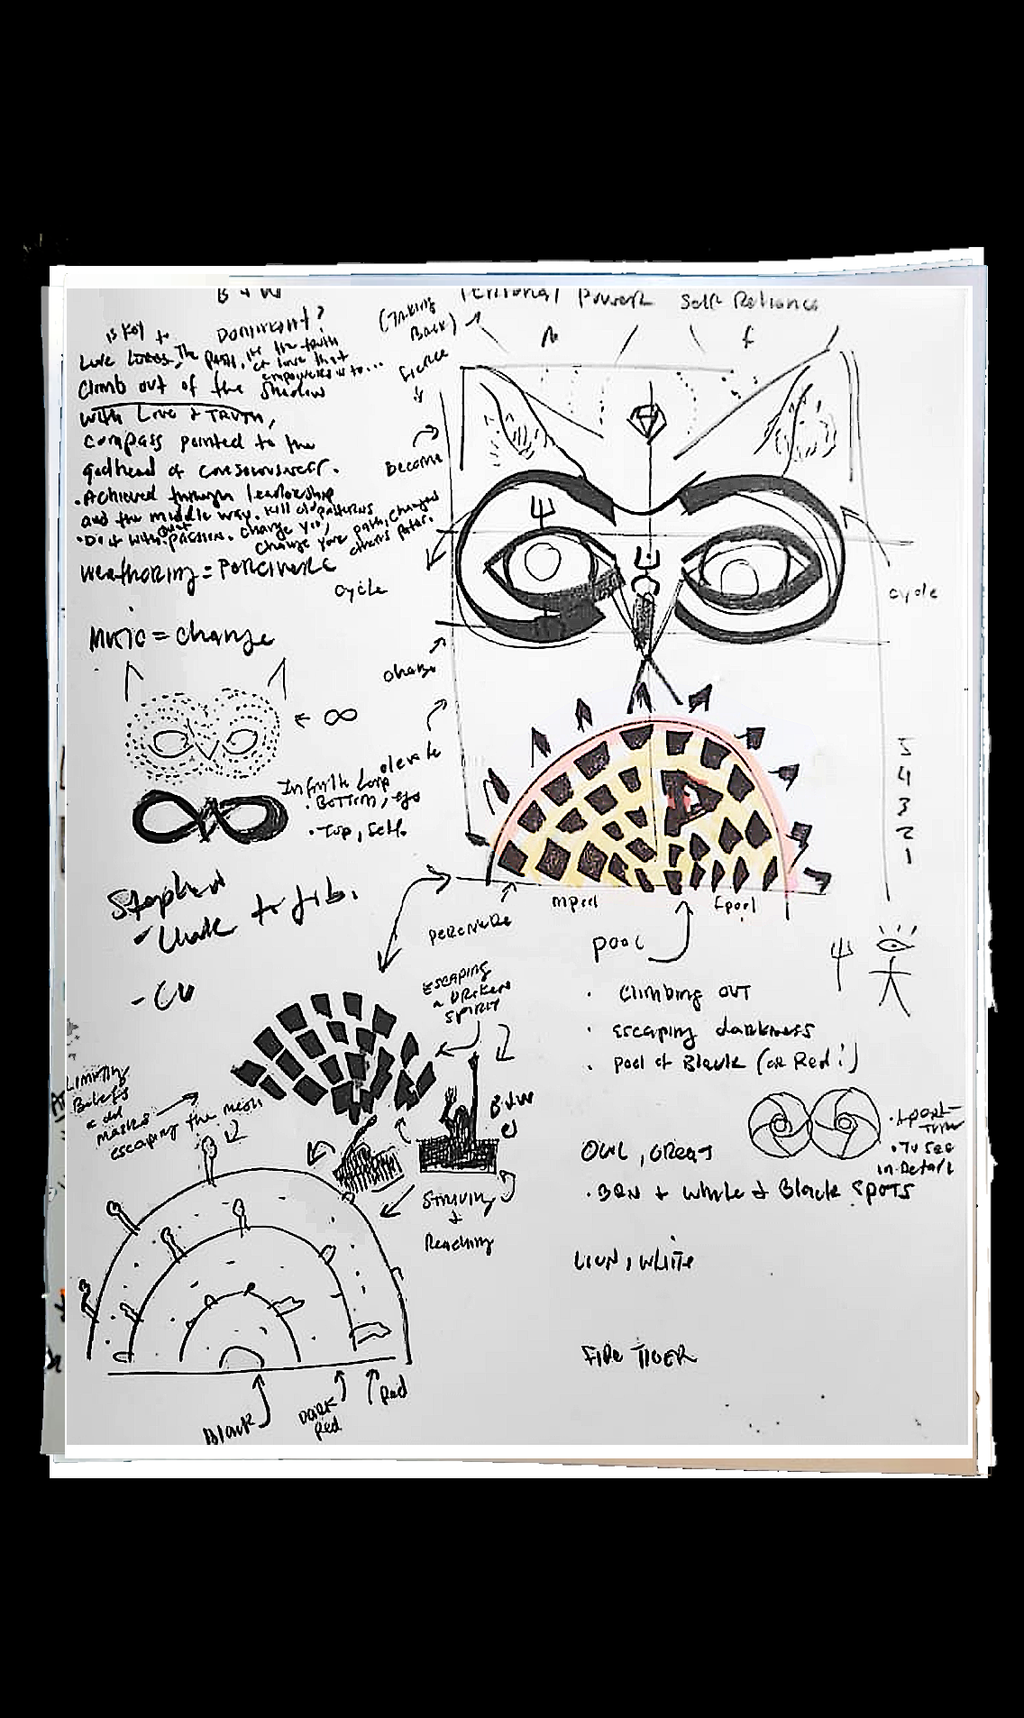 B & W
Personal Power Self Reliance
is key to
Dominant?
(Taking
Back)
Love
the truth
love that
empowers to...
Climb out of the shadow
with Love & TRUTH,
compass pointed to the
godhead of consciousness.
• Achieved through leadership
and the middle way. Kill old patterns
• Do it with passion. change you,
change your path, change
others paths.
Weathering = PERCIVERE
Music = Change
Fierce
Become
cycle
cycle
change
elevate
← ∞
Infinite Loop
• Bottom, ego
• Top, Self.
5
4
3
2
1
Stephen
- CU
mpool
fpool
PERCIVERE
POOL
• Climbing OUT
• escaping darkness
• Pool of Black (or Red!)
Escaping
a broken
SPIRIT
Limiting
Beliefs
masks
escaping the mesh
B+W
Striving
+
Reaching
OWL, GREAT
• To see
in Detail
• BRN + White + Black SPOTS
LION, WHITE
FIRE TIGER
Black
DARK
Red
Red